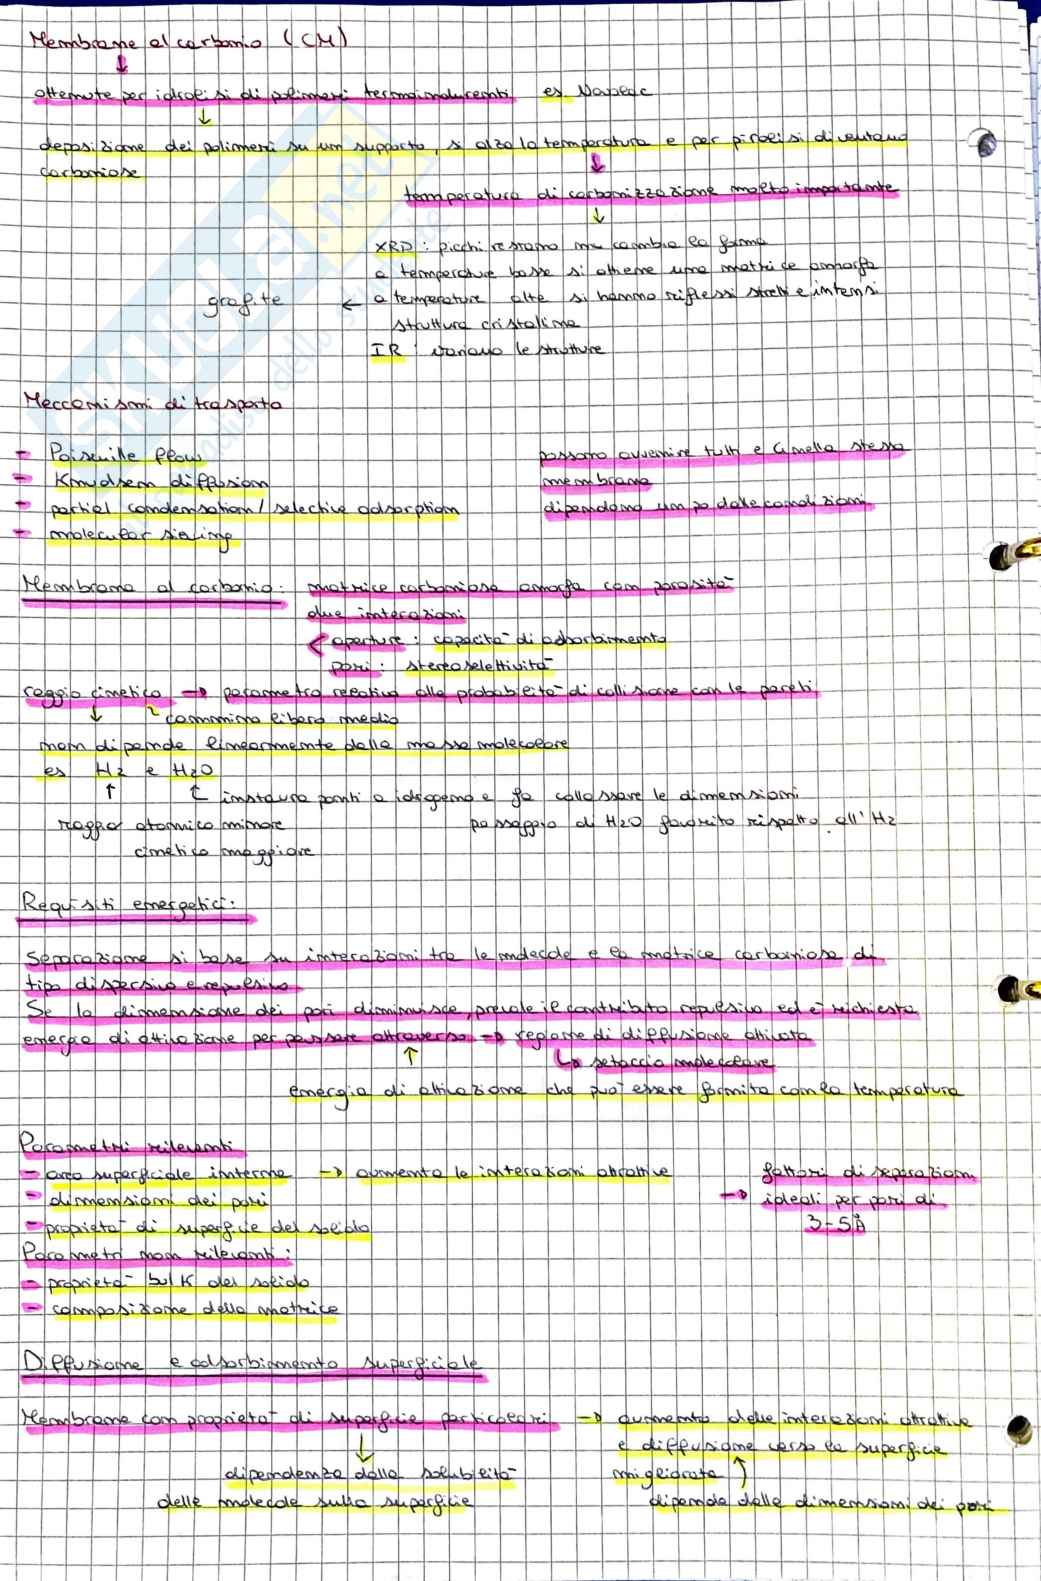 Membrane al carbonio (CM)
ottenute per idrolisi di polimeri termoindurenti es Novolac
deposizione dei polimeri su un supporto, si alza la temperatura e per pirolisi diventano
carboniose
temperatura di carbonizzazione molto importante
XRD: picchi restano ma cambia la forma
a temperature basse si ottiene una matrice amorfa
grafite ← a temperature alte si hanno riflessi stretti e intensi
struttura cristallina
IR: variano le strutture
Meccanismi di trasporto
- Poiseuille flow
- Knudsen diffusion
- partial condensation/selective adsorption
- molecular sieving
possono avvenire tutti e 4 nella stessa
membrana
dipendono un po dalle condizioni
Membrana al carbonio: matrice carboniosa amorfa con porosità
due interazioni
aperture: capacità di adsorbimento
pori: stereoselettività
raggio cinetico → parametro relativo alla probabilità di collisione con le pareti
cammino libero medio
non dipende linearmente dalla massa molecolare
es H2 e H2O
↑ instaura ponti a idrogeno e fa collassare le dimensioni
raggio atomico minore passaggio di H2O favorito rispetto all'H2
cinetico maggiore
Requisiti energetici:
Separazione si basa su interazioni tra le molecole e la matrice carboniosa di
tipo dispersivo e repulsivo
Se la dimensione dei pori diminuisce, prevale il contributo repulsivo ed è richiesta
energia di attivazione per passare attraverso → regione di diffusione attivata
↳ setaccio molecolare
energia di attivazione che può essere fornita con la temperatura
Parametri rilevanti
- area superficiale interna → aumenta le interazioni attrattive
- dimensioni dei pori
- proprietà di superficie del solido
fattori di separazioni
→ ideali per pori di
3-5Å
Parametri non rilevanti:
- proprietà bulk del solido
- composizione della matrice
Diffusione e adsorbimento superficiale
Membrane con proprietà di superficie particolari → aumento delle interazioni attrattive
e diffusione verso la superficie
migliorata
dipendenza dalla solubilità
delle molecole sulla superficie
dipende dalle dimensioni dei pori